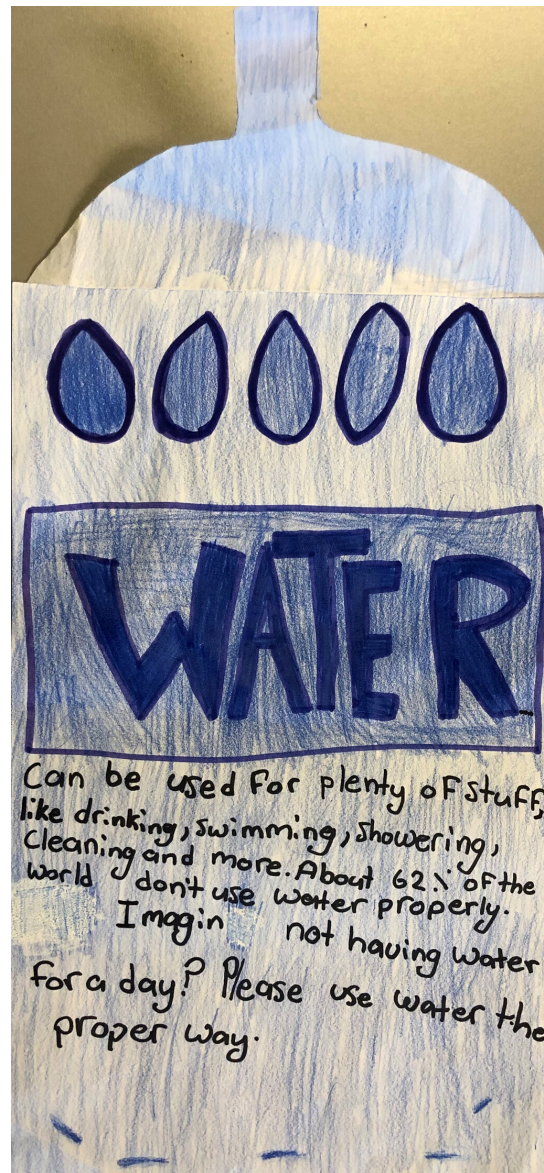 WATER
Can be used for plenty of stuff,
like drinking, swimming, showering,
cleaning and more. About 62% of the
world don't use water properly.
Imagin not having water
for a day? Please use water the
proper way.